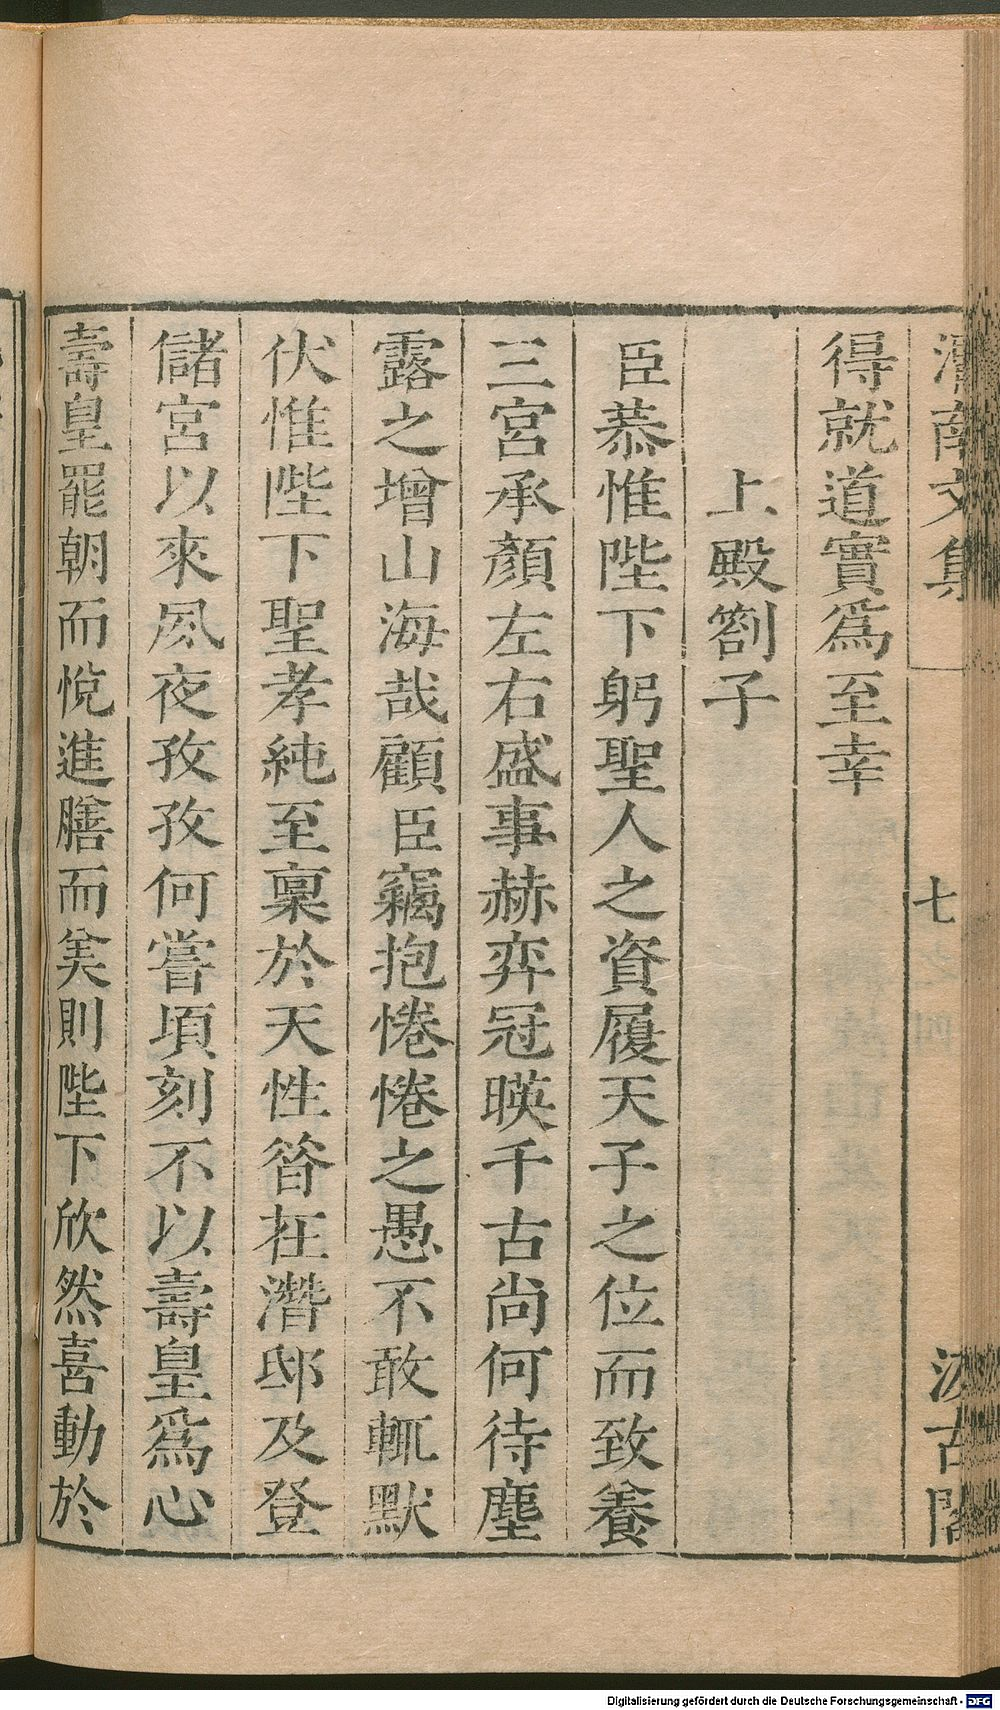 渭南文集 七 汲古閣
得就道實爲至幸
上殿劄子
臣恭惟陛下躬聖人之資履天子之位而致養
三宮承顏左右盛事赫弈冠暎千古尚何待塵
露之增山海哉顧臣竊抱惓惓之愚不敢輒默
伏惟陛下聖孝純至稟於天性昝在潛邸及登
儲宮以來夙夜孜孜何嘗頃刻不以壽皇爲心
壽皇罷朝而悅進膳而美則陛下欣然喜動於
Digitalisierung gefördert durch die Deutsche Forschungsgemeinschaft - DFG